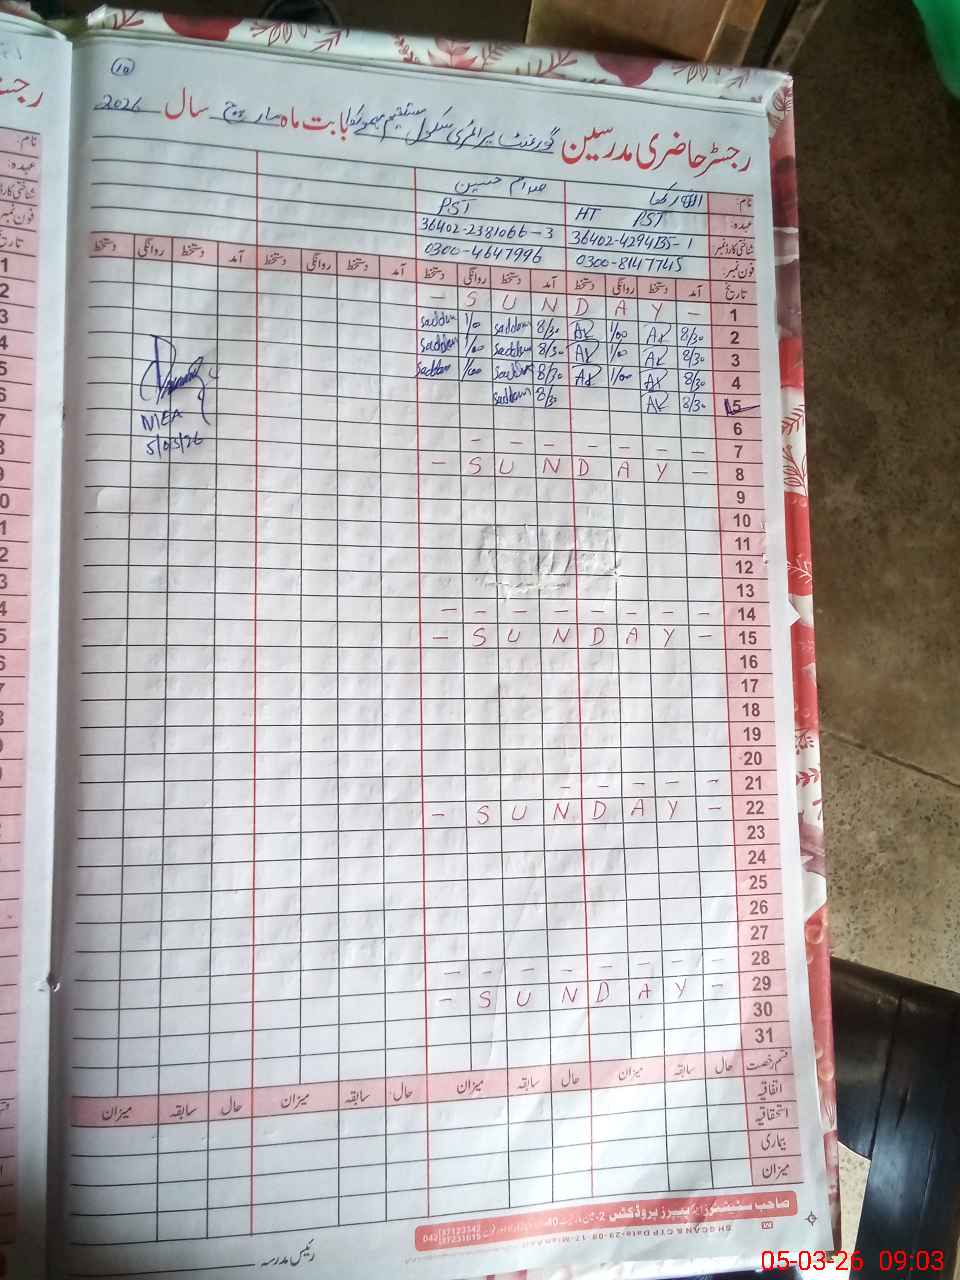 10
رجسٹر حاضری مدرسین گورنمنٹ پرائمری سکول مستقیم بابت ماہ مارچ سال 2026
نام: اللہ رکھا صدام حسین
عہدہ: HT PST PST
شناختی کارڈ نمبر 36402-4294135-1 36402-2381066-3
فون نمبر: 0300-8147745 0300-4647996
تاریخ آمد دستخط روانگی دستخط آمد دستخط روانگی دستخط آمد دستخط روانگی دستخط آمد دستخط روانگی دستخط
1 - S U N D A Y -
2 8/30 AR 1/00 AR 8/30 saddam 1/00 saddam
3 8/30 AR 1/00 AR 8/30 saddam 1/00 saddam
4 8/30 AR 1/00 AR 8/30 saddam 1/00 saddam
5 8/30 AR 8/30 saddam
MEA
5/03/26
6
7 - - - - - - -
8 - S U N D A Y -
9
10
11
12
13
14 - - - - - - - -
15 - S U N D A Y -
16
17
18
19
20
21 - - - - -
22 - S U N D A Y -
23
24
25
26
27
28 - - - - - - - -
29 - S U N D A Y -
30
31
قسم رخصت حال سابقہ میزان حال سابقہ میزان حال سابقہ میزان حال سابقہ میزان
اتفاقیہ
استحقاقیہ
بیماری
میزان
صاحب سٹیشنرز اینڈ پیپرز پروڈکٹس
042 37123342
37231615
رئیس مدرسہ
05-03-26 09:03